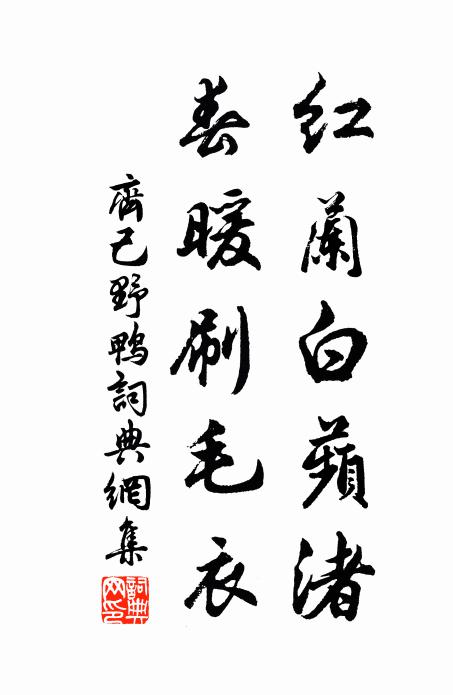 紅蘭白蘋渚
春暖刷毛衣
齊己野鴨詞典網集
詞典